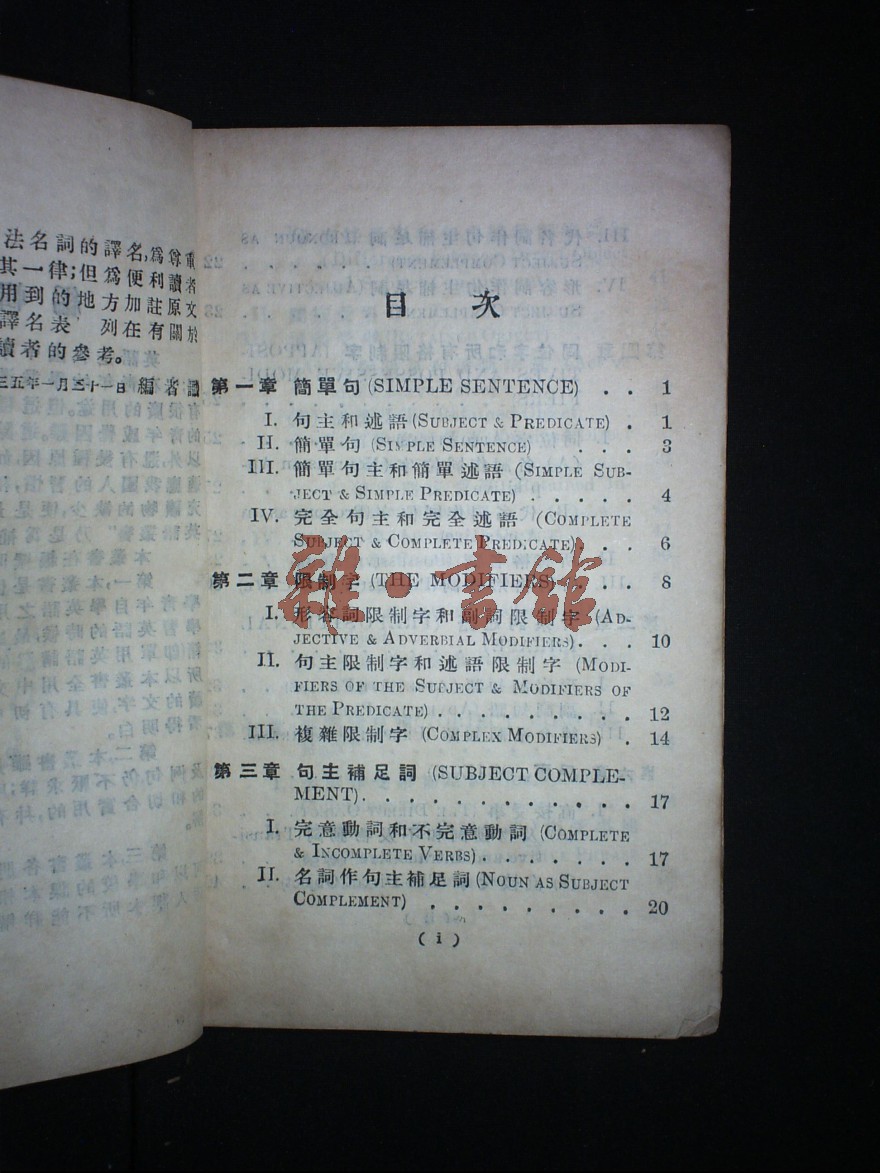 法名詞的譯名,爲尊重
其一律;但爲便利讀者
用到的地方加註原文
譯名表 列在有關於
讀者的參考。
三五年一月三十一日 編者識
目次
第一章 簡單句 (SIMPLE SENTENCE) . . 1
I. 句主和述語 (SUBJECT & PREDICATE) . 1
II. 簡單句 (SIMPLE SENTENCE) . . . 3
III. 簡單句主和簡單述語 (SIMPLE SUB-
JECT & SIMPLE PREDICATE) . . . . . 4
IV. 完全句主和完全述語 (COMPLETE
SUBJECT & COMPLETE PREDICATE) . . . 6
第二章 限制字 (THE MODIFIERS) . . . 8
I. 形容詞限制字和副詞限制字 (AD-
JECTIVE & ADVERBIAL MODIFIERS) . . . 10
II. 句主限制字和述語限制字 (MODI-
FIERS OF THE SUBJECT & MODIFIERS OF
THE PREDICATE) . . . . . . . . . 12
III. 複雜限制字 (COMPLEX MODIFIERS) . 14
第三章 句主補足詞 (SUBJECT COMPLE-
MENT) . . . . . . . . . . . 17
I. 完意動詞和不完意動詞 (COMPLETE
& INCOMPLETE VERBS) . . . . . . . 17
II. 名詞作句主補足詞 (NOUN AS SUBJECT
COMPLEMENT) . . . . . . . . . 20
( i )
雜·書館